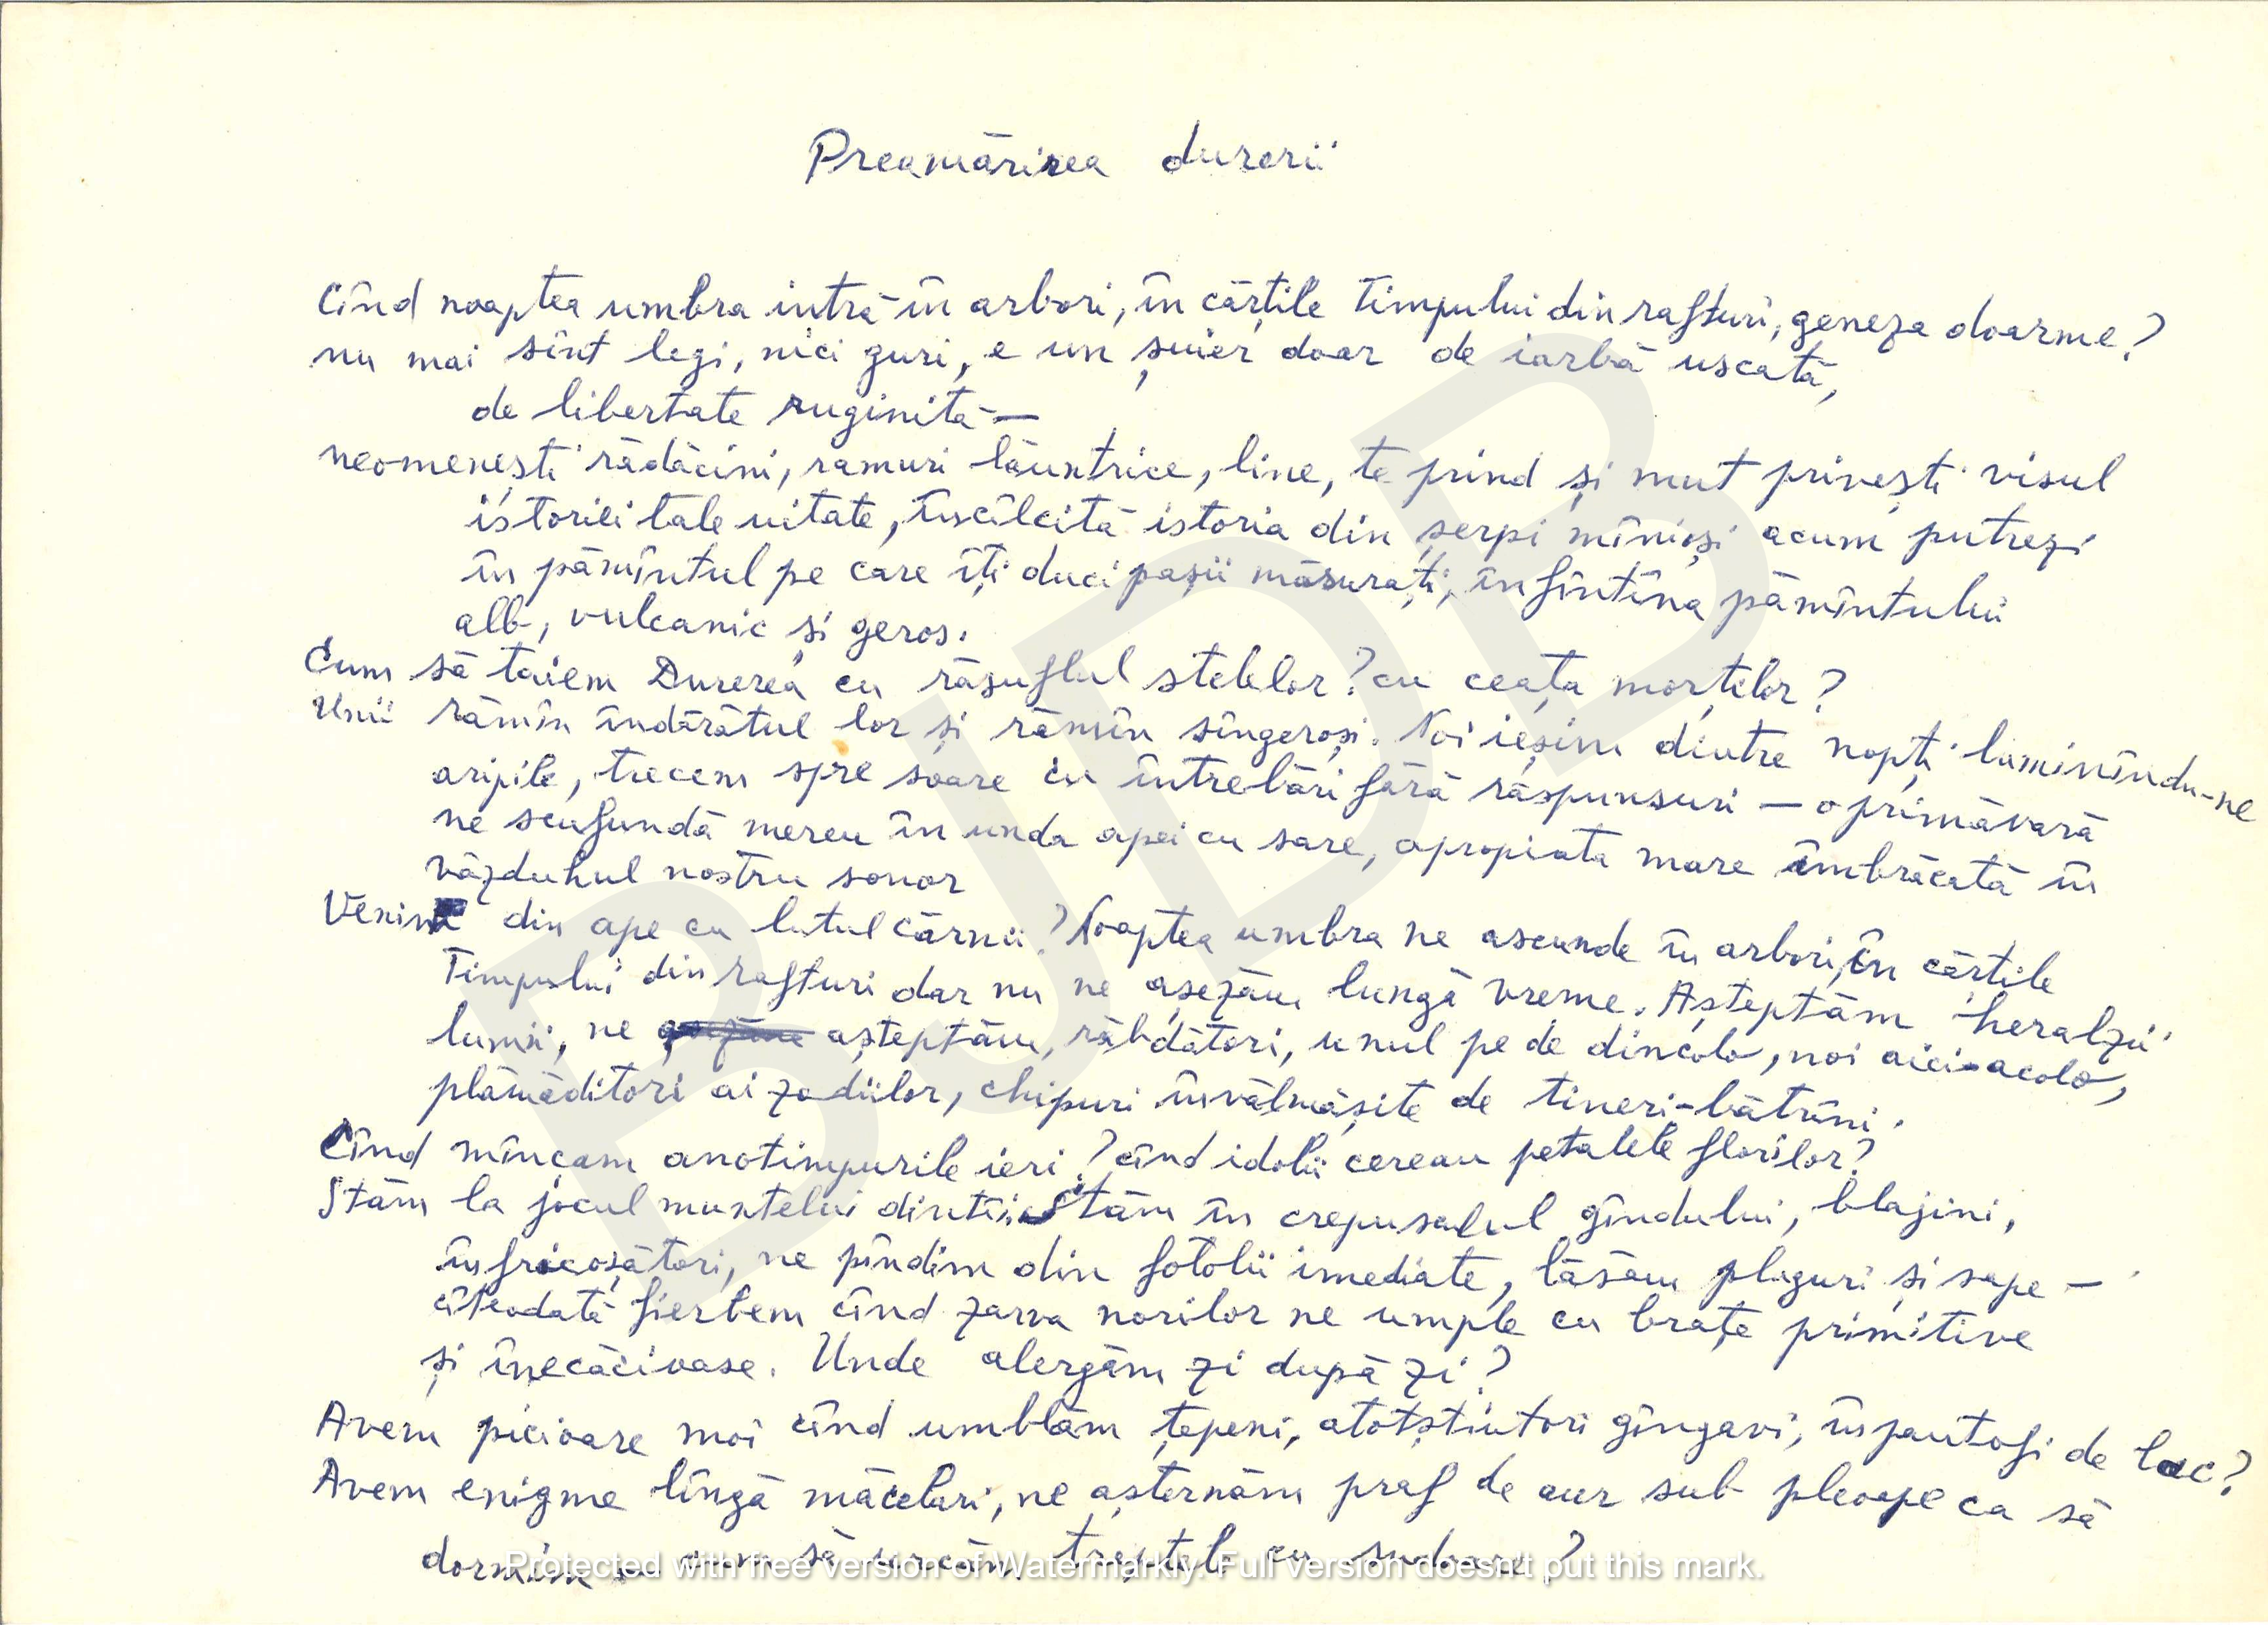 Preamărirea durerii
Cînd noaptea umbra intră în arbori, în cărțile Timpului din rafturi, geneza doarme?
nu mai sînt legi, nici guri, e un șuier doar de iarbă uscată,
de libertate ruginită —
neomenești rădăcini, ramuri lăuntrice, line, te prind și mut privești visul
istoriei tale uitate, încîlcită istoria din șerpi mînioși acum putrezi
în pămîntul pe care îți duci pașii măsurați, în fîntîna pămîntului
alb, vulcanic și geros.
Cum să tăiem Durerea cu răsuflul stelelor? cu ceața morților?
Unii rămîn îndărătul lor și rămîn sîngeroși. Noi ieșim dintre nopți luminîndu-ne
aripile, trecem spre soare cu întrebări fără răspunsuri — o primăvară
ne scufundă mereu în unda apei cu sare, apropiata mare îmbrăcată în
văzduhul nostru sonor
Venim din ape cu lutul cărnii? Noaptea umbra ne ascunde în arbori, în cărțile
Timpului din rafturi dar nu ne așezăm lungă vreme. Așteptăm heralzii
lumii, ne așteptăm, răbdători, unul pe de dincolo, noi aici-acolo,
plămăditori ai zodiilor, chipuri învălmășite de tineri-bătrîni.
Cînd mîncam anotimpurile ieri? cînd idolii cereau petalele florilor?
Stăm la jocul muntelui dintîi. Stăm în crepusculul gîndului, blajini,
înfricoșători, ne pîndim din fotolii imediate, lăsăm pluguri și sape —
cîteodată fierbem cînd zarva norilor ne umple cu brațe primitive
și înecăcioase. Unde alergăm zi după zi?
Avem picioare moi cînd umblăm țepeni, atotștiutori gîngavi, în pantofi de lac?
Avem enigme lîngă măcelari, ne așternăm praf de aur sub pleoape ca să
dormim cum să urcăm treptele cu sudoare?
Protected with free version of Watermarkly. Full version doesn't put this mark.
BJDB